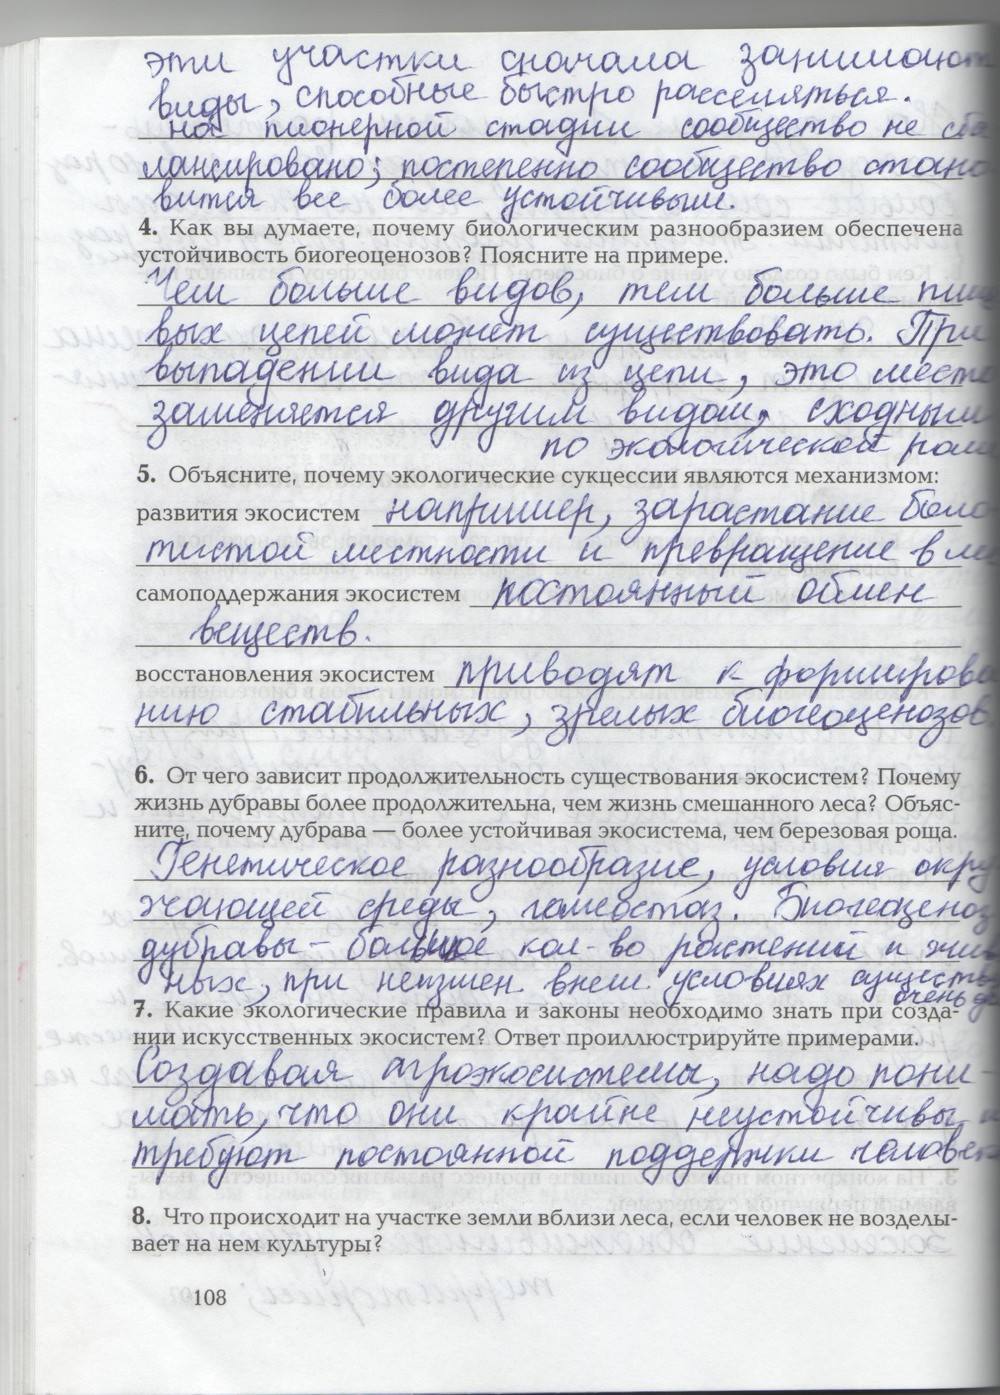 эти участки сначала занимают
виды, способные быстро расселяться.
на пионерной стадии сообщество не сба
лансировано; постепенно сообщество стано
вится все более устойчивым.
4. Как вы думаете, почему биологическим разнообразием обеспечена
устойчивость биогеоценозов? Поясните на примере.
Чем больше видов, тем больше пище
вых цепей может существовать. При
выпадении вида из цепи, это место
заменяется другим видом, сходным
по экологической роли
5. Объясните, почему экологические сукцессии являются механизмом:
развития экосистем например, зарастание боло
тистой местности и превращение в ле
самоподдержания экосистем постоянный обмен
веществ.
восстановления экосистем приводят к формирова
нию стабильных, зрелых биогеоценозов.
6. От чего зависит продолжительность существования экосистем? Почему
жизнь дубравы более продолжительна, чем жизнь смешанного леса? Объяс-
ните, почему дубрава — более устойчивая экосистема, чем березовая роща.
Генетическое разнообразие, условия окру
жающей среды, гомеостаз. Биогеоценоз
дубравы - большое кол-во растений и жив
ных, при неизмен внеш условиях существ
очень до
7. Какие экологические правила и законы необходимо знать при созда-
нии искусственных экосистем? Ответ проиллюстрируйте примерами.
Создавая агроэкосистемы, надо пони-
мать, что они крайне неустойчивы и
требуют постоянной поддержки человека
8. Что происходит на участке земли вблизи леса, если человек не возделы-
вает на нем культуры?
108